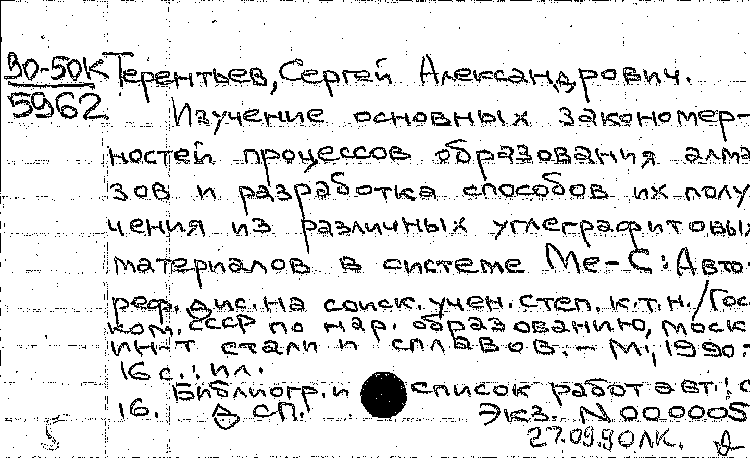 90-50К Терентьев, Сергей Александрович.
5962
Изучение основных закономер-
ностей процессов образования алма
зов и разработка способов их полу
чения из различных углеграфитовых
материалов в системе Ме-С: Авто-
реф. дис. на соиск. учен. степ. к.т.н. / Гос
ком. СССР по нар. образованию, Моск
ин-т стали и сплавов. - М., 1990.-
16 с.: ил.
Библиогр. и список работ авт.: с
16. ДСП. Экз. N 000005
27.09.90 ЛК.